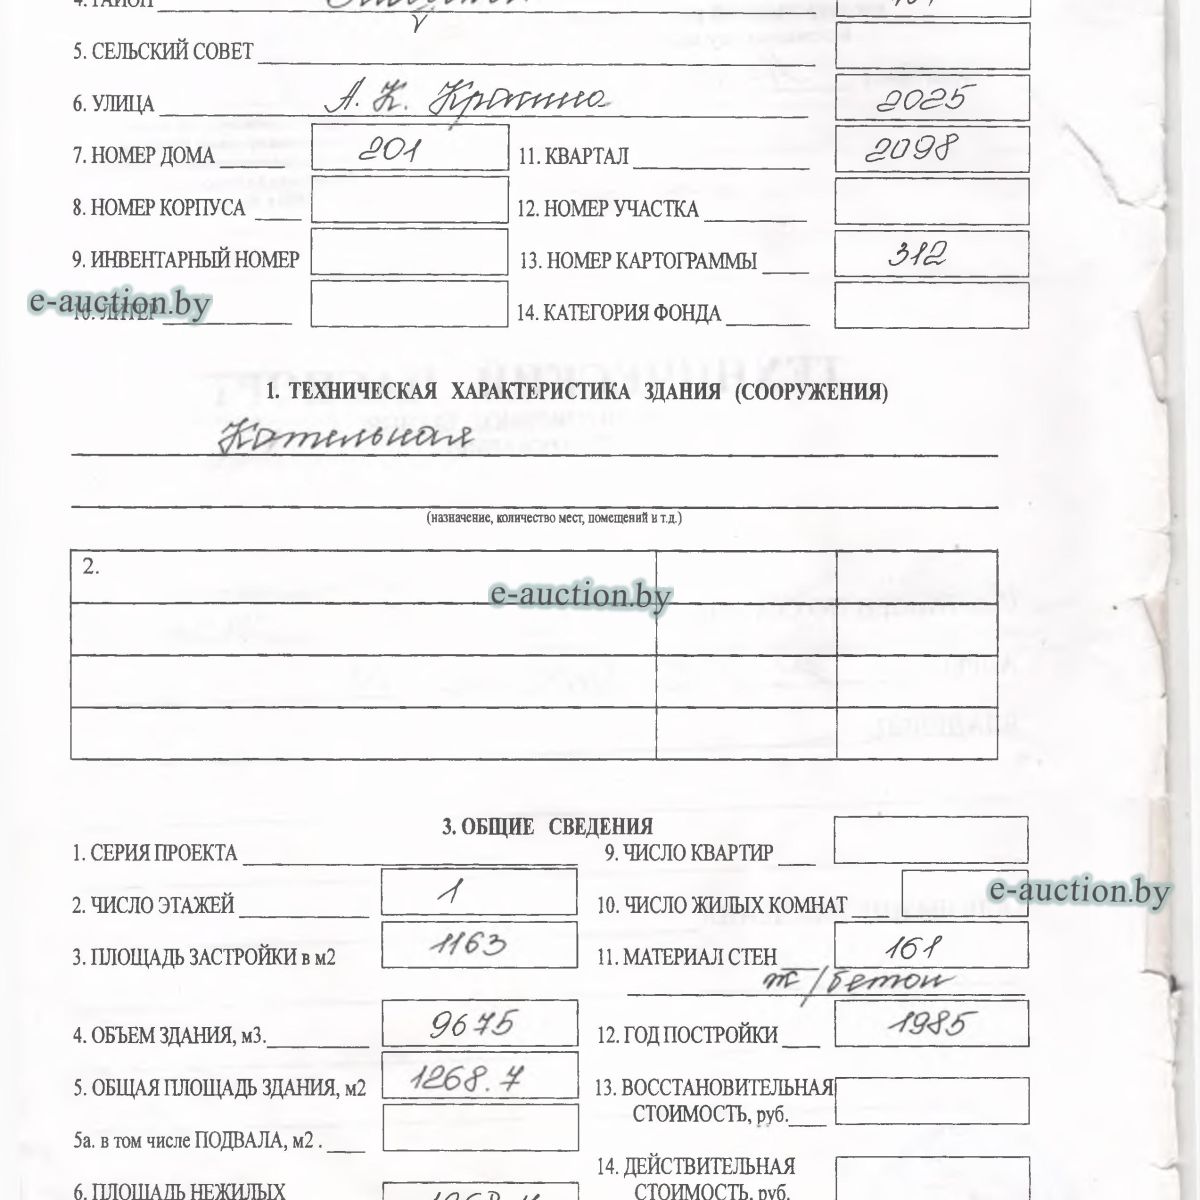 4. РАЙОН
5. СЕЛЬСКИЙ СОВЕТ
6. УЛИЦА А. К. 2025
7. НОМЕР ДОМА 201 11. КВАРТАЛ 2098
8. НОМЕР КОРПУСА 12. НОМЕР УЧАСТКА
9. ИНВЕНТАРНЫЙ НОМЕР 13. НОМЕР КАРТОГРАММЫ 312
e-auction.by
10. ЛИТЕР 14. КАТЕГОРИЯ ФОНДА
1. ТЕХНИЧЕСКАЯ ХАРАКТЕРИСТИКА ЗДАНИЯ (СООРУЖЕНИЯ)
Котельная
(назначение, количество мест, помещений и т.д.)
2.
e-auction.by
3. ОБЩИЕ СВЕДЕНИЯ
1. СЕРИЯ ПРОЕКТА 9. ЧИСЛО КВАРТИР
e-auction.by
2. ЧИСЛО ЭТАЖЕЙ 1 10. ЧИСЛО ЖИЛЫХ КОМНАТ
3. ПЛОЩАДЬ ЗАСТРОЙКИ в м2 1163 11. МАТЕРИАЛ СТЕН 161
ж/бетон
4. ОБЪЕМ ЗДАНИЯ, м3. 9675 12. ГОД ПОСТРОЙКИ 1985
5. ОБЩАЯ ПЛОЩАДЬ ЗДАНИЯ, м2 1268.7 13. ВОССТАНОВИТЕЛЬНАЯ
СТОИМОСТЬ, руб.
5а. в том числе ПОДВАЛА, м2 .
14. ДЕЙСТВИТЕЛЬНАЯ
6. ПЛОЩАДЬ НЕЖИЛЫХ СТОИМОСТЬ, руб.